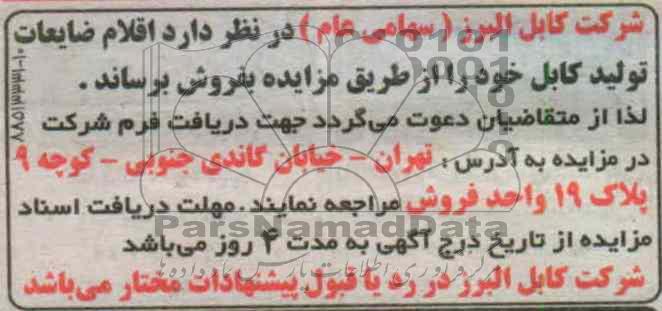 شرکت کابل البرز (سهامی عام) در نظر دارد اقلام ضایعات
تولید کابل خود را از طریق مزایده بفروش برساند.
لذا از متقاضیان دعوت می‌گردد جهت دریافت فرم شرکت
در مزایده به آدرس: تهران - خیابان گاندی جنوبی - کوچه ۹
پلاک ۱۹ واحد فروش مراجعه نمایند. مهلت دریافت اسناد
مزایده از تاریخ درج آگهی به مدت ۴ روز می‌باشد
شرکت کابل البرز در رد یا قبول پیشنهادات مختار می‌باشد
ParsNamadData